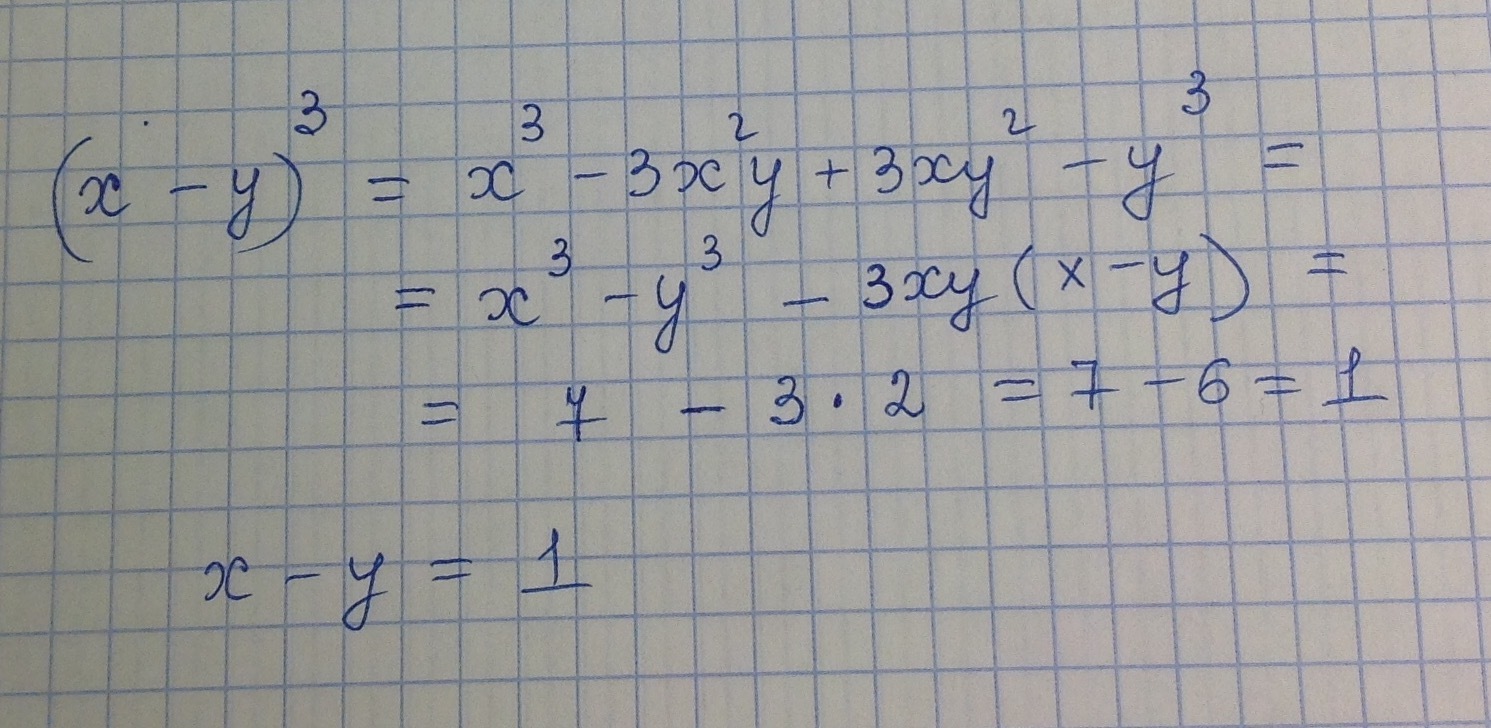 (x - y)³ = x³ - 3x²y + 3xy² - y³ =
= x³ - y³ - 3xy(x - y) =
= 7 - 3 · 2 = 7 - 6 = 1
x - y = 1